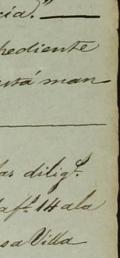 cia."
pediente
está man
las diligs.
la fs. 14 a la
sa Villa